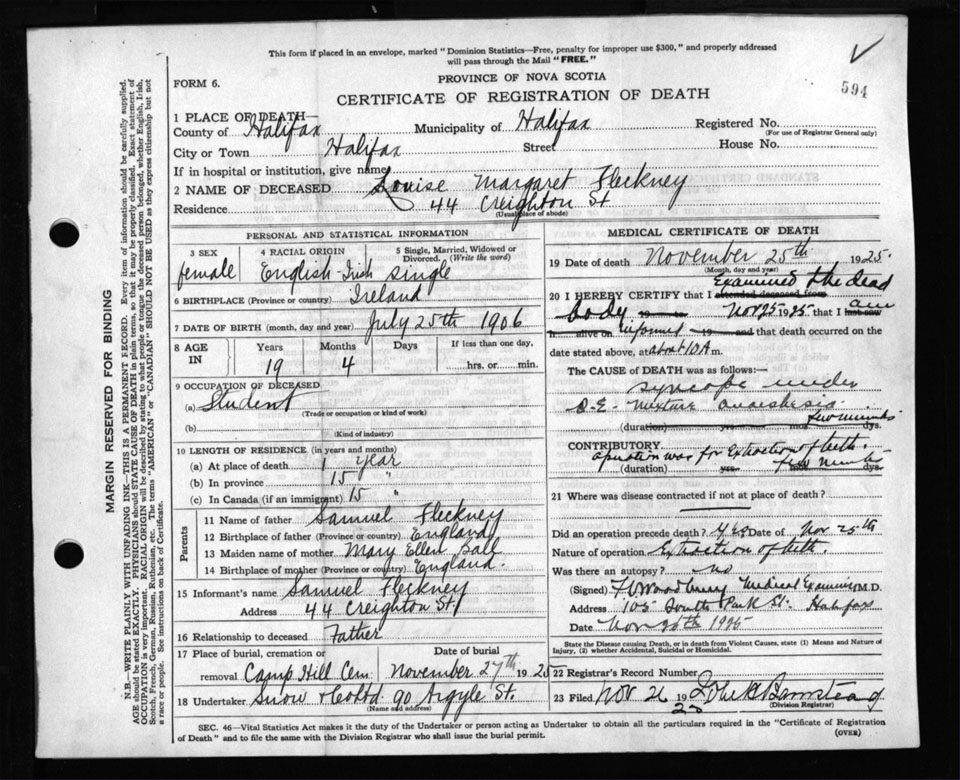 This form if placed in an envelope, marked "Dominion Statistics—Free, penalty for improper use $300," and properly addressed
will pass through the Mail "FREE."
594
FORM 6.
PROVINCE OF NOVA SCOTIA
CERTIFICATE OF REGISTRATION OF DEATH
1 PLACE OF DEATH—
County of Halifax Municipality of Halifax Registered No.
(For use of Registrar General only)
City or Town Halifax Street House No.
If in hospital or institution, give name
2 NAME OF DECEASED Louise Margaret Fleckney
Residence 44 Creighton St
(Usual place of abode)
MARGIN RESERVED FOR BINDING
N.B.—WRITE PLAINLY WITH UNFADING INK—THIS IS A PERMANENT RECORD. Every item of information should be carefully supplied.
AGE should be stated EXACTLY. PHYSICIANS should STATE CAUSE OF DEATH in plain terms, so that it may be properly classified. Exact statement of
OCCUPATION is very important. RACIAL ORIGIN will be described by stating to what people or tongue the deceased person belonged, whether English, Irish,
Scotch, French, German, Russian, Ruthenian, etc. The terms "AMERICAN" or "CANADIAN" SHOULD NOT BE USED as they express citizenship but not
a race or people. See instructions on back of Certificate.
PERSONAL AND STATISTICAL INFORMATION
3 SEX 4 RACIAL ORIGIN 5 Single, Married, Widowed or
Divorced. (Write the word)
female English-Irish single
6 BIRTHPLACE (Province or country) Ireland
7 DATE OF BIRTH (month, day and year) July 25th 1906
8 AGE IN Years Months Days If less than one day,
19 4 hrs. or min.
9 OCCUPATION OF DECEASED
(a) Student
(Trade or occupation or kind of work)
(b)
(Kind of industry)
10 LENGTH OF RESIDENCE (in years and months)
(a) At place of death 1 year
(b) In province 15 "
(c) In Canada (if an immigrant) 15 "
Parents
11 Name of father Samuel Fleckney
12 Birthplace of father (Province or country) England
13 Maiden name of mother Mary Ellen Ball
14 Birthplace of mother (Province or country) England
15 Informant Samuel Fleckney
Address 44 Creighton St.
16 Relationship to deceased Father
17 Place of burial, cremation or Date of burial
removal Camp Hill Cem November 27th 1925
18 Undertaker Snow & Co Ltd 90 Argyle St.
(Name and address)
MEDICAL CERTIFICATE OF DEATH
19 Date of death November 25th 1925.
(Month, day and year)
Examined the dead
20 I HEREBY CERTIFY that I attended deceased from
body 19 to Nov 25 1925 that I last saw am
h alive on informed 19 and that death occurred on the
date stated above, at about 10 A m.
The CAUSE OF DEATH was as follows:—
Syncope under
C.E. Mixture anaesthesia
few minutes
(duration) yrs. mos. dys.
CONTRIBUTORY
operation was for Extraction of teeth.
(duration) yrs. few minutes dys.
21 Where was disease contracted if not at place of death?
Did an operation precede death? Yes Date of Nov 25th
Nature of operation Extraction of teeth.
Was there an autopsy? no
(Signed) Woodbury Medical Examiner M.D.
Address 105 South Park St. Halifax
Date Nov 26th 1925
State the Disease causing Death, or in death from Violent Causes, state (1) Means and Nature of
Injury, (2) whether Accidental, Suicidal or Homicidal.
22 Registrar's Record Number
23 Filed Nov 26 1925 John Barnstead
(Division Registrar)
SEC. 46—Vital Statistics Act makes it the duty of the Undertaker or person acting as Undertaker to obtain all the particulars required in the "Certificate of Registration
of Death" and to file the same with the Division Registrar who shall issue the burial permit.
(OVER)